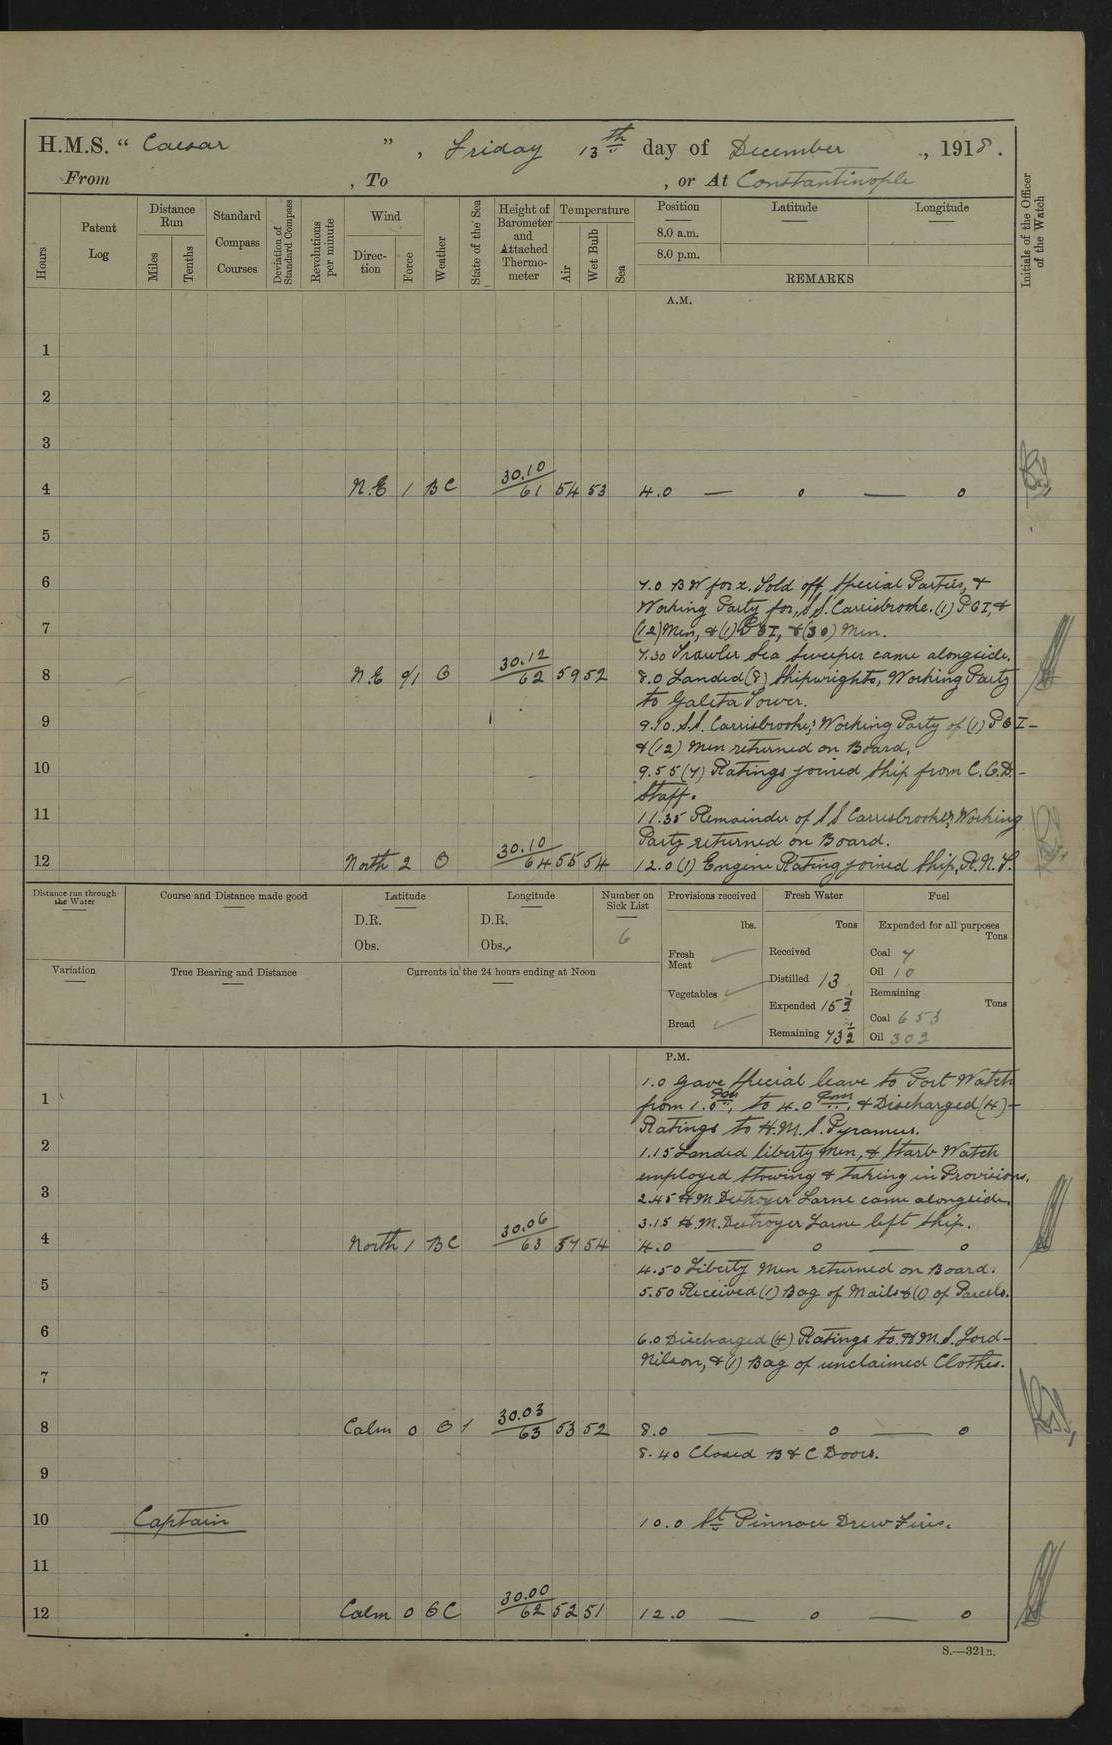 H.M.S. “ Caesar ” , Friday 13th day of December , 1918 .
From , To , or At Constantinople
Hours
Patent Log
Distance Run
Miles
Tenths
Standard Compass Courses
Deviation of Standard Compass
Revolutions per minute
Wind
Direction
Force
Weather
State of the Sea
Height of Barometer and Attached Thermometer
Temperature
Air
Wet Bulb
Sea
Position
8.0 a.m.
8.0 p.m.
Latitude
Longitude
REMARKS
Initials of the Officer of the Watch
A.M.
1
2
3
4 N.E 1 BC 30.10/61 54 53 4.0 — o — o
5
6
7.0 B W for x. Told off, Special Parties, &
Working Party for, S.S. Carrisbrooke. (1) POI, &
7
(12) Men, & (1) POI, & (30) Men.
7.30 Trawler Sea Sweeper came alongside.
8 N.E 0/1 O 30.12/62 59 52 8.0 Landed (8) Shipwrights, Working Party
to Galeta Tower.
9
9.10. S.S. Carrisbrooke; Working Party of (1) POI —
& (12) Men returned on Board.
10
9.55 (7) Ratings joined Ship from C.G.D. —
Staff.
11
11.35 Remainder of S S Carrisbrooke, Working
Party returned on Board.
12 North 2 O 30.10/64 55 54 12.0 (1) Engine Rating joined Ship, R.N.T.
Distance run through the Water
Course and Distance made good
Latitude
D.R.
Obs.
Longitude
D.R.
Obs.
Number on Sick List
6
Provisions received
lbs.
Fresh Meat
Vegetables
Bread
Fresh Water
Tons
Received
Distilled 13
Expended 15½
Remaining 73½
Fuel
Expended for all purposes
Tons
Coal 7
Oil 10
Remaining
Tons
Coal 653
Oil 302
Variation
True Bearing and Distance
Currents in the 24 hours ending at Noon
P.M.
1.0 Gave Special leave to Port Watch
1
from 1.0 pm, to 4.0 pm, & Discharged (4) —
Ratings to H.M.S. Pyramus.
2
1.15 Landed liberty Men, & Starb Watch
employed Stowing & taking in Provisions.
3
2.45 H.M. Destroyer Larne came alongside.
3.15 H.M. Destroyer Larne left Ship.
4 North 1 BC 30.06/63 57 54 4.0 — o — o
4.50 Liberty Men returned on Board.
5
5.50 Received (1) Bag of Mails & (1) of Parcels.
6
6.0 Discharged (4) Ratings to H.M.S. Lord —
Nilson, & (1) Bag of unclaimed Clothes.
7
8 Calm 0 O 1 30.03/63 53 52 8.0 — o — o
8.40 Closed B & C Doors.
9
10 Captain 10.0 St Pinnace Drew Fires.
11
12 Calm 0 BC 30.00/62 52 51 12.0 — o — o
S.—321B.